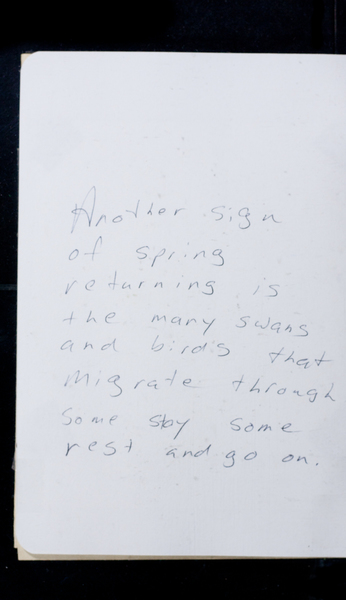 Another sign
of spring
returning is
the many swans
and birds that
migrate through
some stay some
rest and go on.